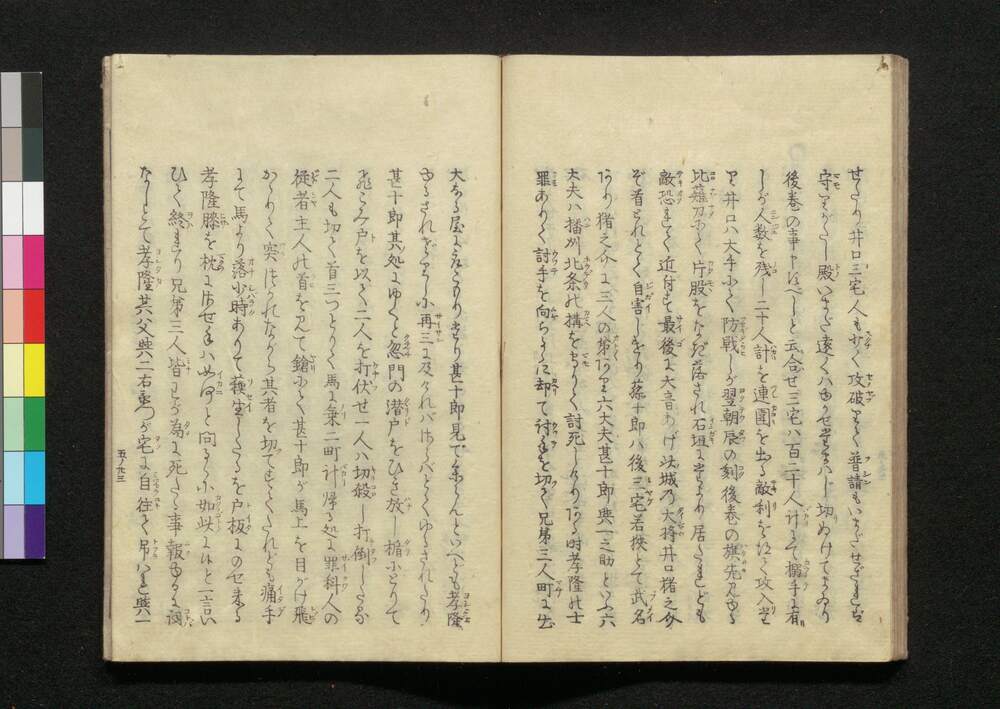 せたり井口三宅人も少く攻破りて普請もいまだせざれば
守りがたし殿いまだ遠くハ
後巻の事申べしと云合せ三宅ハ百二十人計にて搦手に有
しが人数を残し二十人計を連囲を出る敵利を攻入
井口ハ大手にて防戦しが翌朝辰の刻後巻の旗先見ゆる
比薙刀にて片股をなぎ落され石垣によりより居たれども
敵恐れて近付ず最後に大音あげ此城乃大将井口猪之介
ぞ首とれとて自害しけり藤十郎ハ後三宅若狭とて武名
あり猪之介に三人の弟あり六大夫甚十郎與一之助といふ六
大夫ハ播州北条の構をまもりて討死しけりある時孝隆の士
罪ありて討手を向らるに却て討手を切て兄弟三人町に出
大なる屋にこもり甚十郎見て参らんといへども孝隆
ゆるされず再三に及けれバさらバとてゆるされたり
甚十郎其処にゆくと忽門の潜戸をひき放し楯にとりて
飛こみ戸を以て二人を打伏せ一人ハ切殺し打倒したる
二人も切て首三つとりて馬に乗二町計帰る処に罪科人の
従者主人の首を見て鎗にて甚十郎が馬上を目がけ飛
かゝりて突けれながら其者を切てすてたれども痛手
にて馬より落少時ありて蘇生したるを戸板にのせ来る
孝隆膝を枕にさせ手ハいかにと問るに如此にと一言い
ひて終れり兄弟三人皆わが為に死たる事報ゆるに詞
なしとて孝隆其父與二右衛門が宅に自往て弔はれ與一
五ノ九三